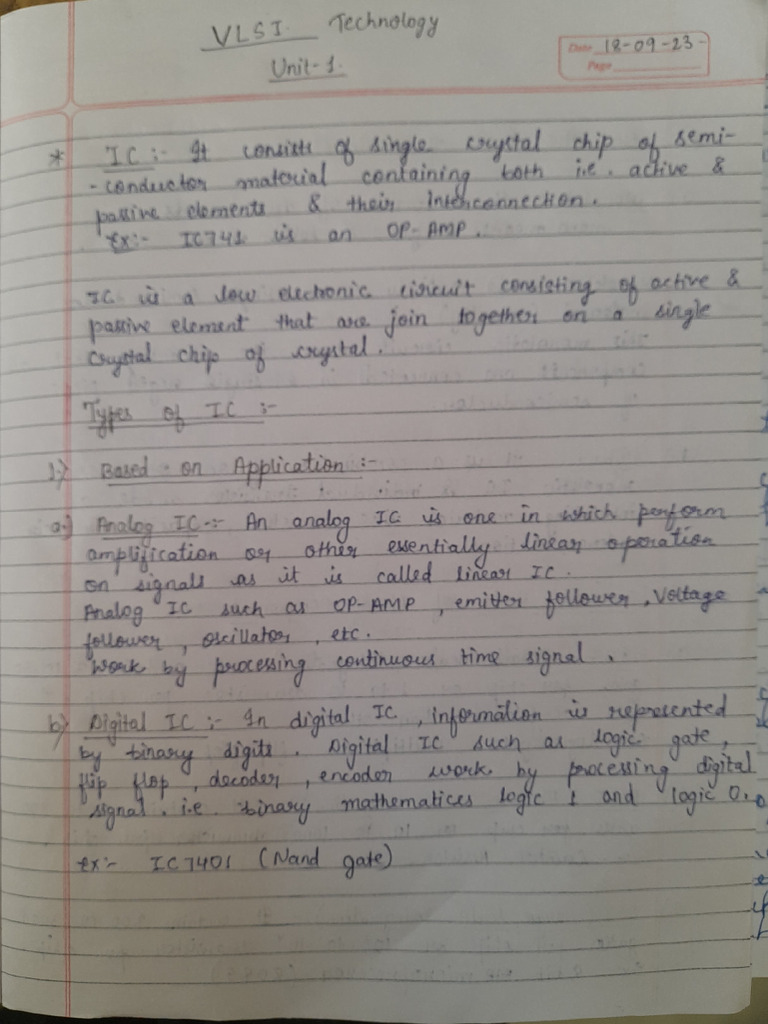 VLSI Technology
Unit-1.
Date 18-09-23-
Page
* IC :- It consists of single crystal chip of semi-
-conductor material containing both i.e. active &
passive elements & their interconnection.
Ex:- IC741 is an OP-AMP.
IC is a low electronic circuit consisting of active &
passive element that are join together on a single
crystal chip of crystal.
Types of IC :-
1.) Based on Application :-
a.) Analog IC -: An analog IC is one in which perform
amplification or other essentially linear operation
on signals as it is called linear IC.
Analog IC such as OP-AMP, emitter follower, Voltage
follower, oscillator, etc.
Work by processing continuous time signal.
b) Digital IC :- In digital IC, information is represented
by binary digits. Digital IC such as logic gate,
flip flop, decoder, encoder work by processing digital
signal. i.e. binary mathematices logic 1 and logic 0.
ex:- IC7401 (Nand gate)